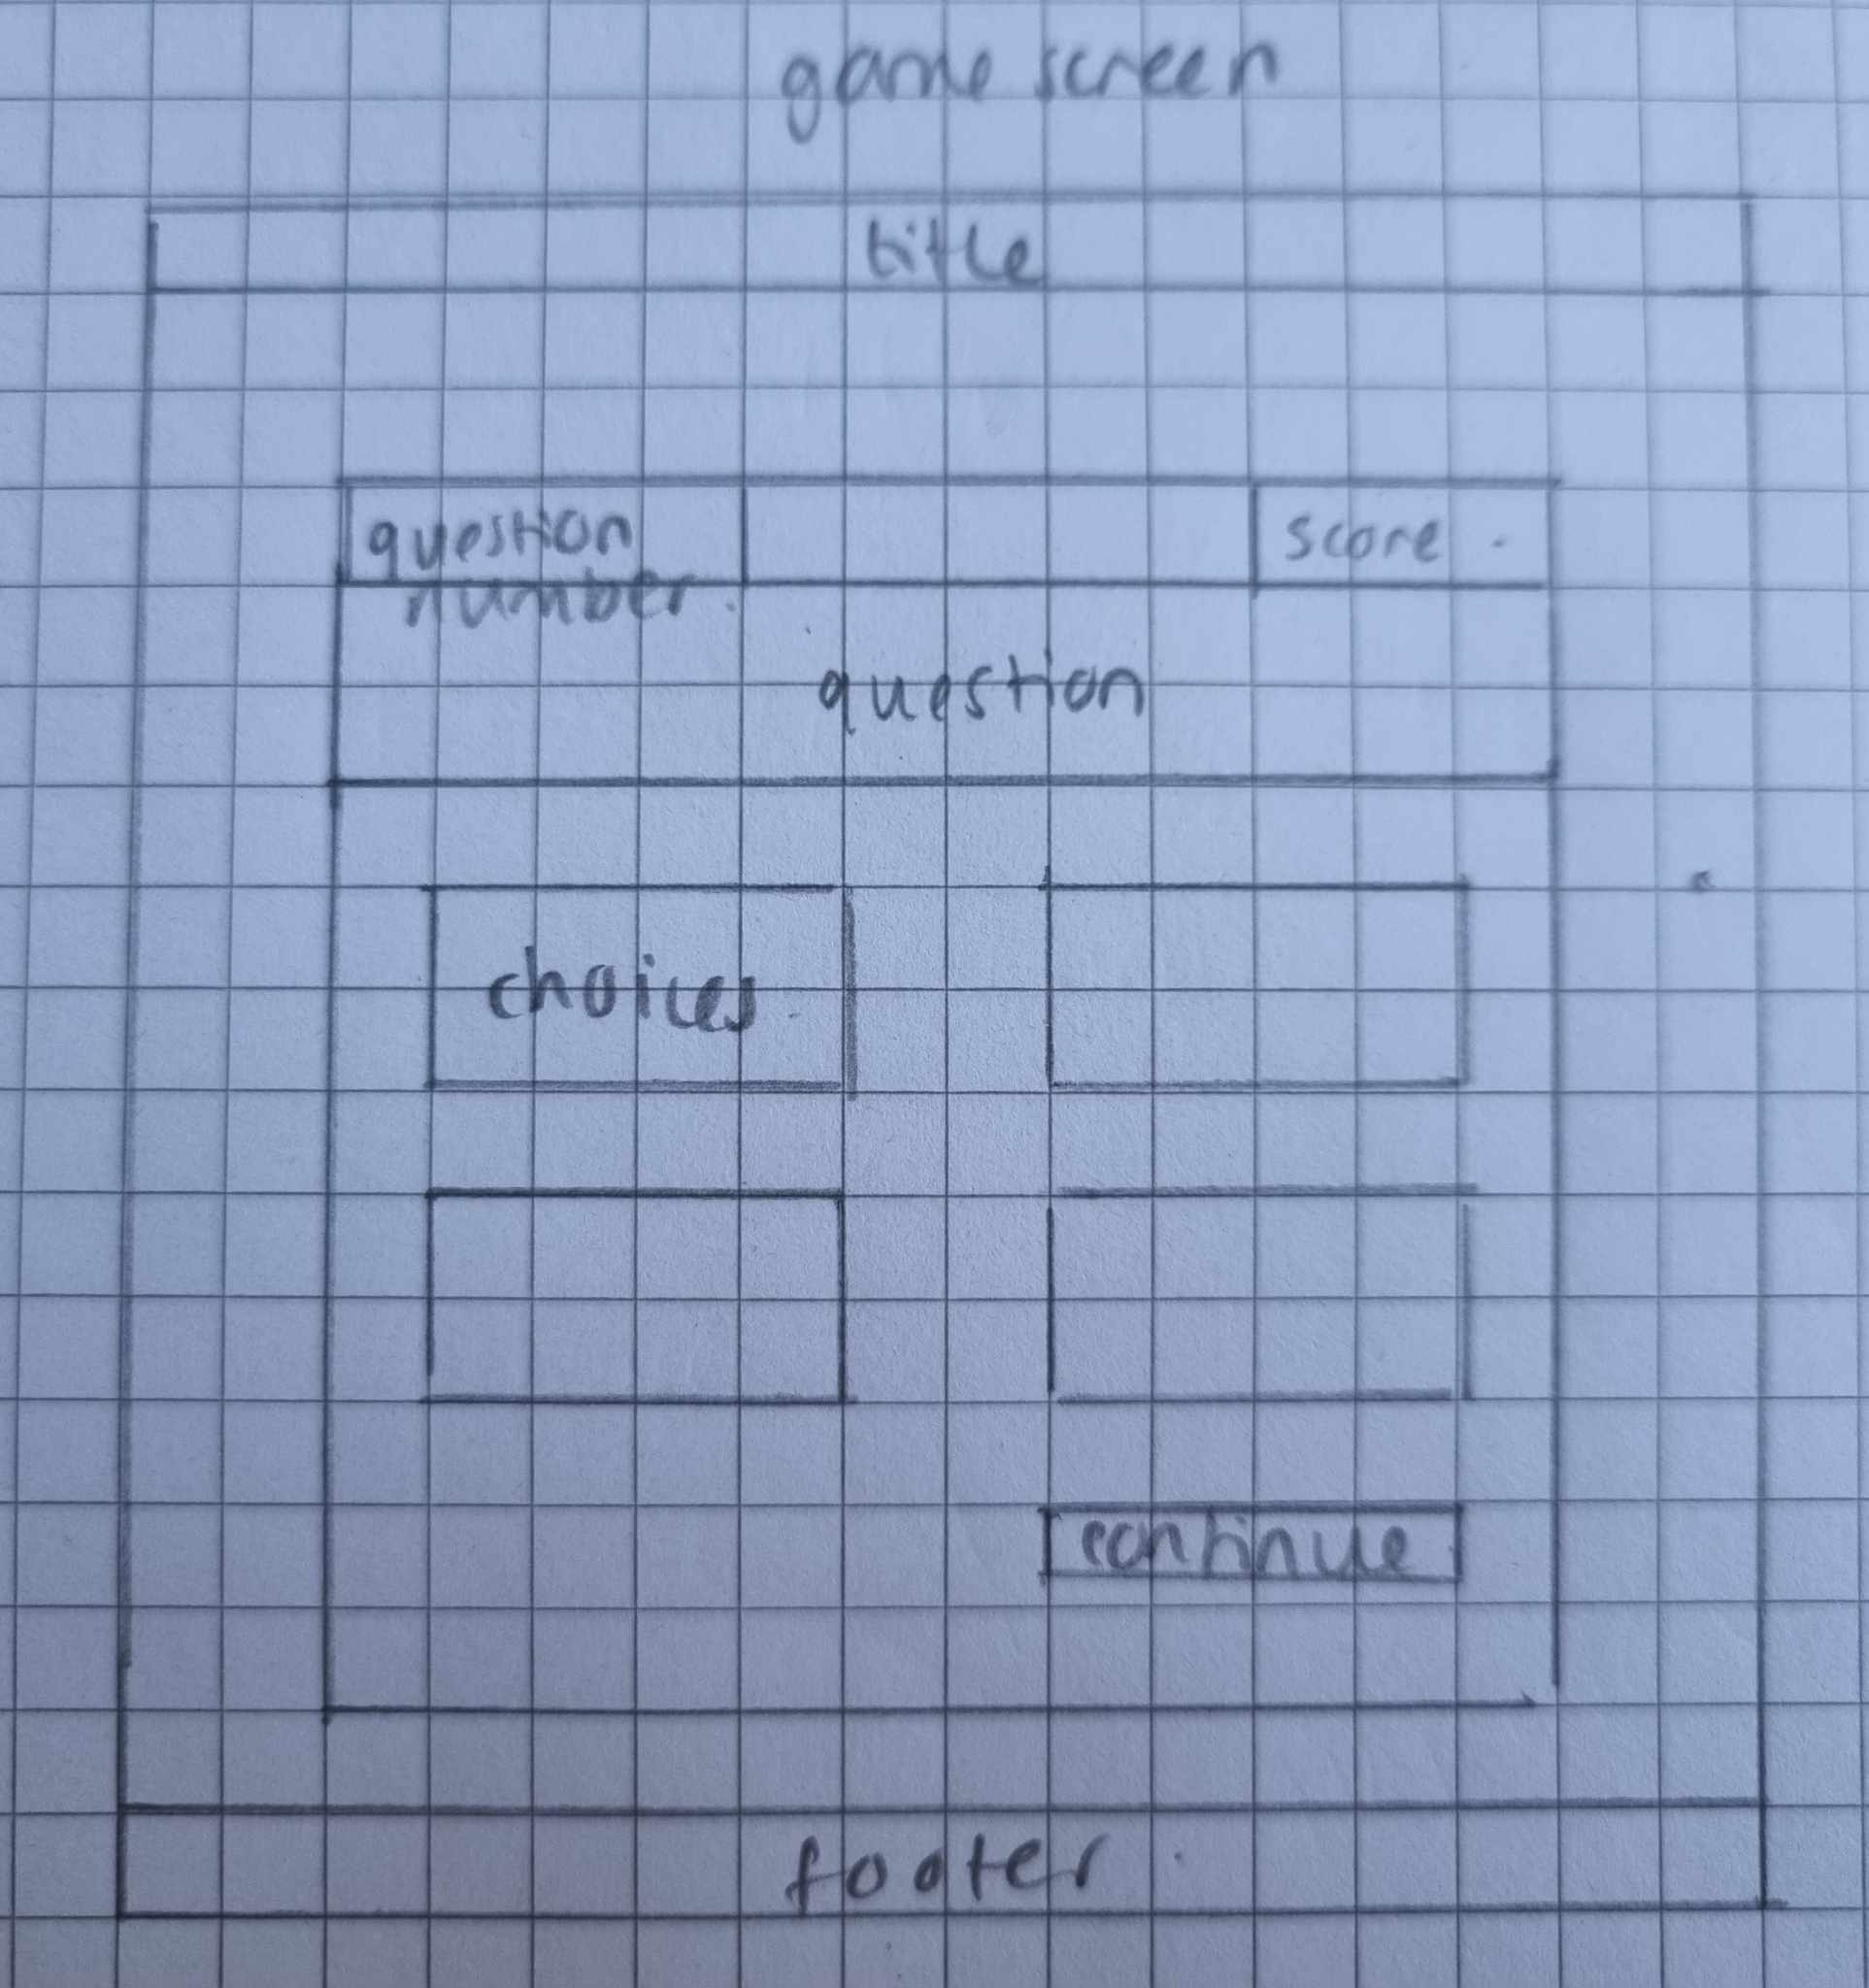 game screen
title
question
number.
score.
question
choices.
continue
footer.